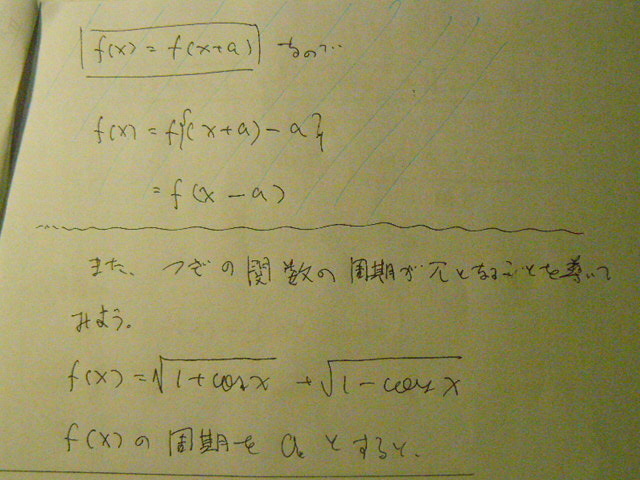 f(x) = f(x+a) なので…
f(x) = f{(x+a) - a}
= f(x - a)
また、つぎの関数の周期がπとなることを導いて
みよう。
f(x) = √1+cosx + √1-cosx
f(x)の周期を a とすると、